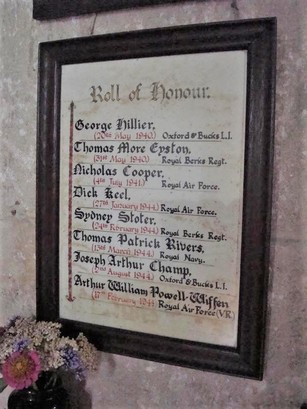 Roll of Honour.
George Hillier.
(20th May 1940) Oxford & Bucks L.I.
Thomas More Eyston.
May 1940) Royal Berks Regt.
Nicholas Cooper.
(4th July 1941) Royal Air Force.
Dick Keel.
(27th January 1944) Royal Air Force.
Sydney Stoter.
(24th February 1944) Royal Berks Regt.
Thomas Patrick Rivers.
(13th March 1944) Royal Navy.
Joseph Arthur Champ.
(2nd August 1944) Oxford & Bucks L.I.
Arthur William Powell-Wiffen
February Royal Air Force (V.R.)